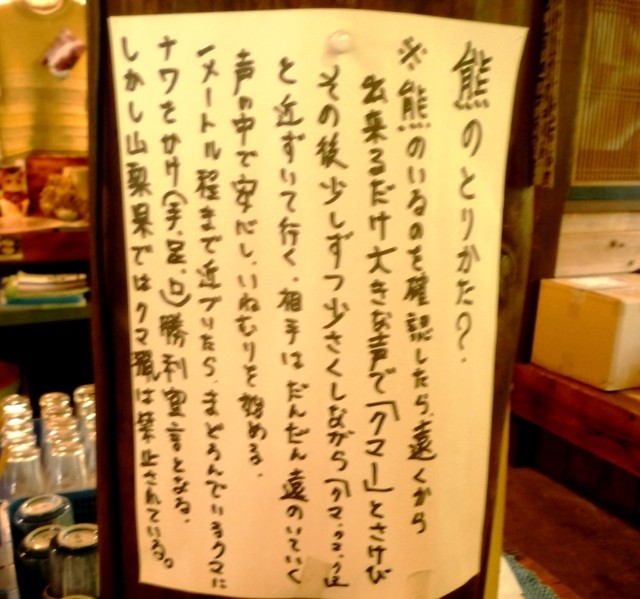 熊のとりかた?
※熊のいるのを確認したら、遠くから
出来るだけ大きな声で「クマー」とさけび
その後少しずつ少さくしながら「クマ、クマ、
と近ずいて行く、相手はだんだん遠のいていく
声の中で安心し、いねむりを始める、
一メートル程まで近づいたら、まどろんでいるクマに
ナワをかけ(手、足、口)勝利宣言となる、
しかし山梨県ではクマ猟は禁止されている。